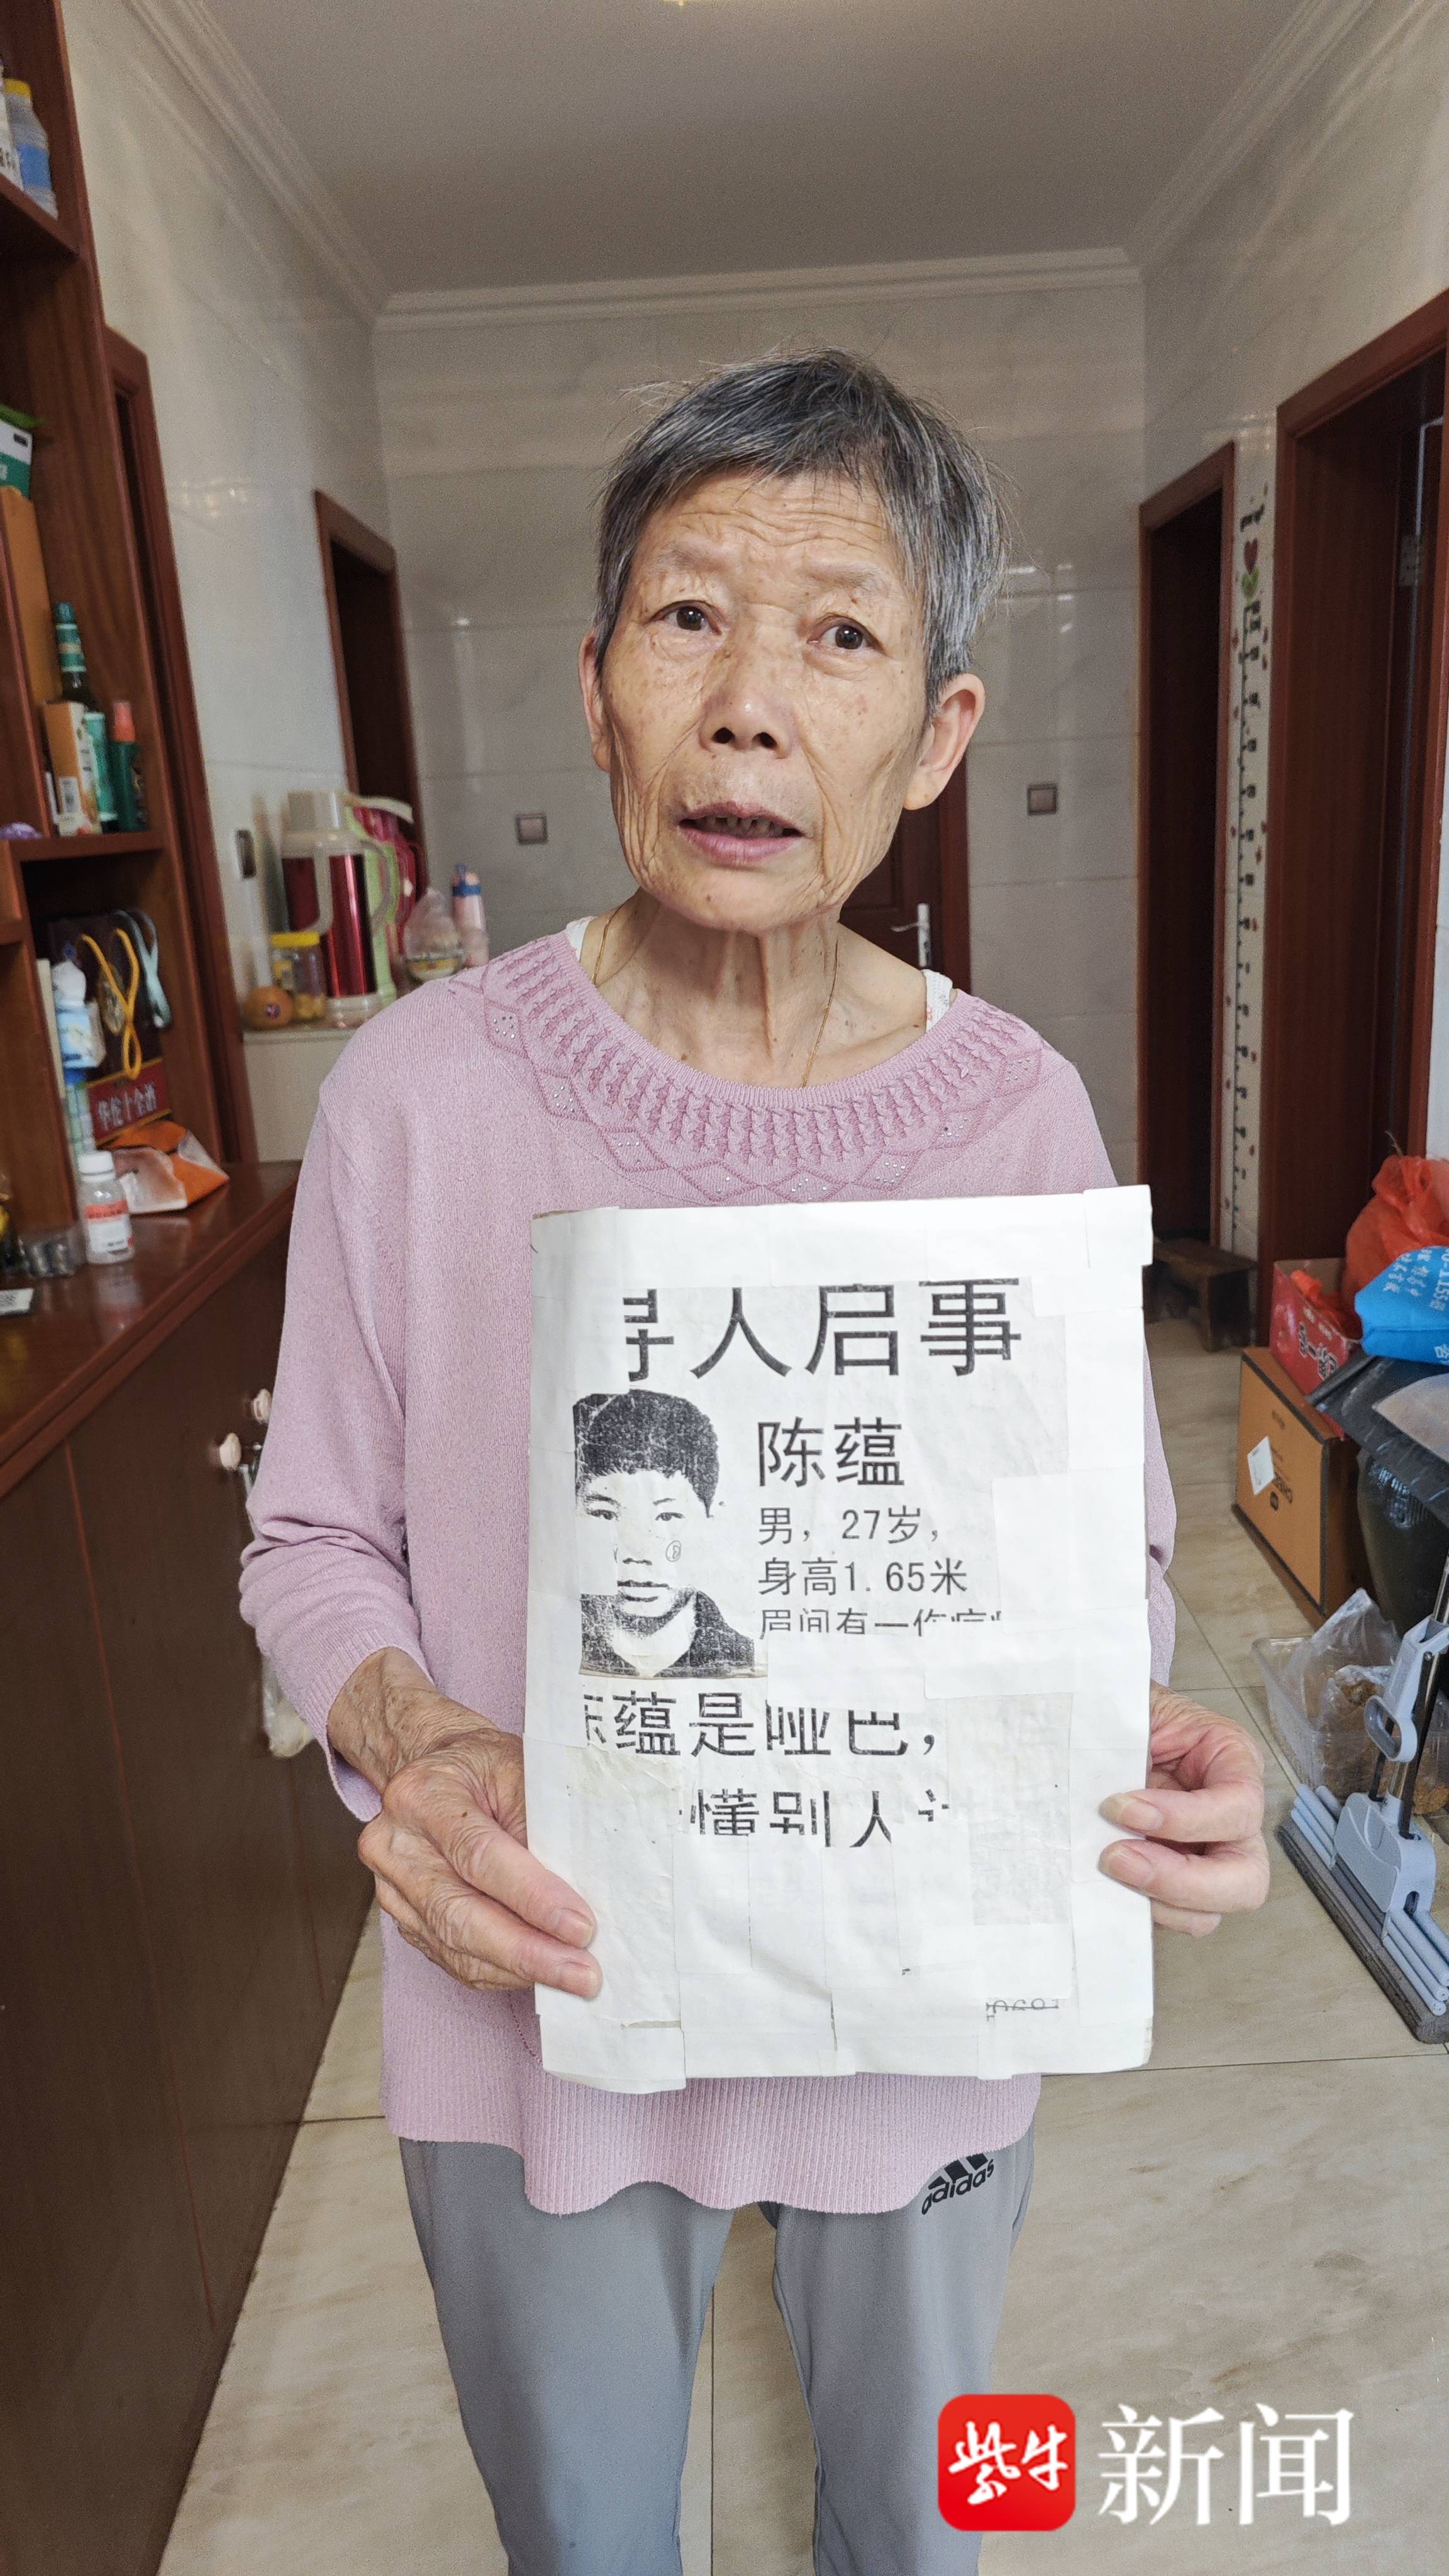 人启事
陈蕴
男，27岁，
身高1.65米
眉间有一伤疤
陈蕴是哑巴，
懂别人
华佗十全酒
adidas
紫牛
新闻